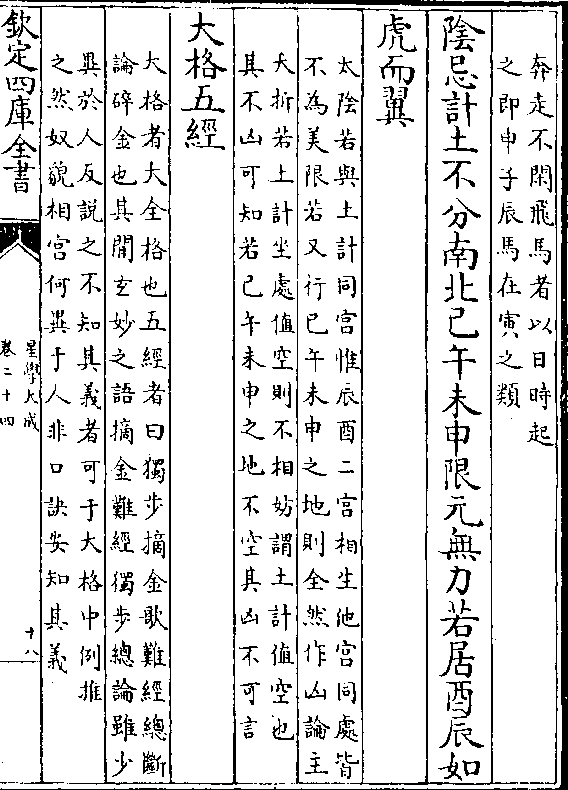 奔走不閑飛馬者以日時起
之即申子辰馬在寅之類
陰忌計土不分南北巳午未申限元無力若居酉辰如
虎而翼
太陰若與土計同宫惟辰酉二宫相生他宫同處皆
不為美限若又行巳午未申之地則全然作凶論主
夭折若土計坐處值空則不相妨謂土計值空也
其不凶可知若巳午未申之地不空其凶不可言
大格五經
大格者大全格也五經者曰獨步摘金歌難經總斷
論碎金也其間玄妙之語摘金難經獨步總論雖少
異於人反說之不知其義者可于大格中例推
之然奴貌相宫何異于人非口訣安知其義
欽定四庫全書
星學大成
卷二十四
十八